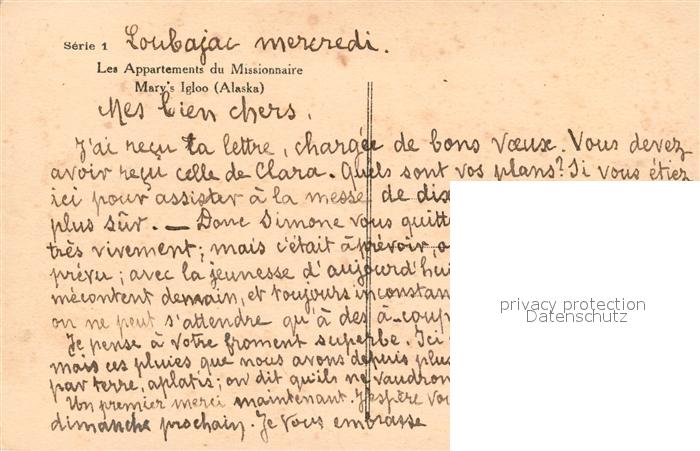 Série 1 Loubajac mercredi.
Les Appartements du Missionnaire
Mary's Igloo (Alaska)
Mes bien chers.
J'ai reçu ta lettre, chargée de bons vœux. Vous devez
avoir reçu celle de Clara. Quels sont vos plans? Si vous étiez
ici pour assister à la messe de dix
plus sûr. — Donc Simone vous quitt
très vivement; mais c'était à prévoir, o
prévu; avec la jeunesse d'aujourd'hui
mécontent demain, et toujours inconstan
on ne peut s'attendre qu'à des à-coup
Je pense à votre froment superbe. Ici
mais ces pluies que nous avons depuis plus
par terre, aplatis; on dit qu'ils ne vaudron
Un premier merci maintenant. J'espère vo
dimanche prochain. Je vous embrasse
privacy protection
Datenschutz